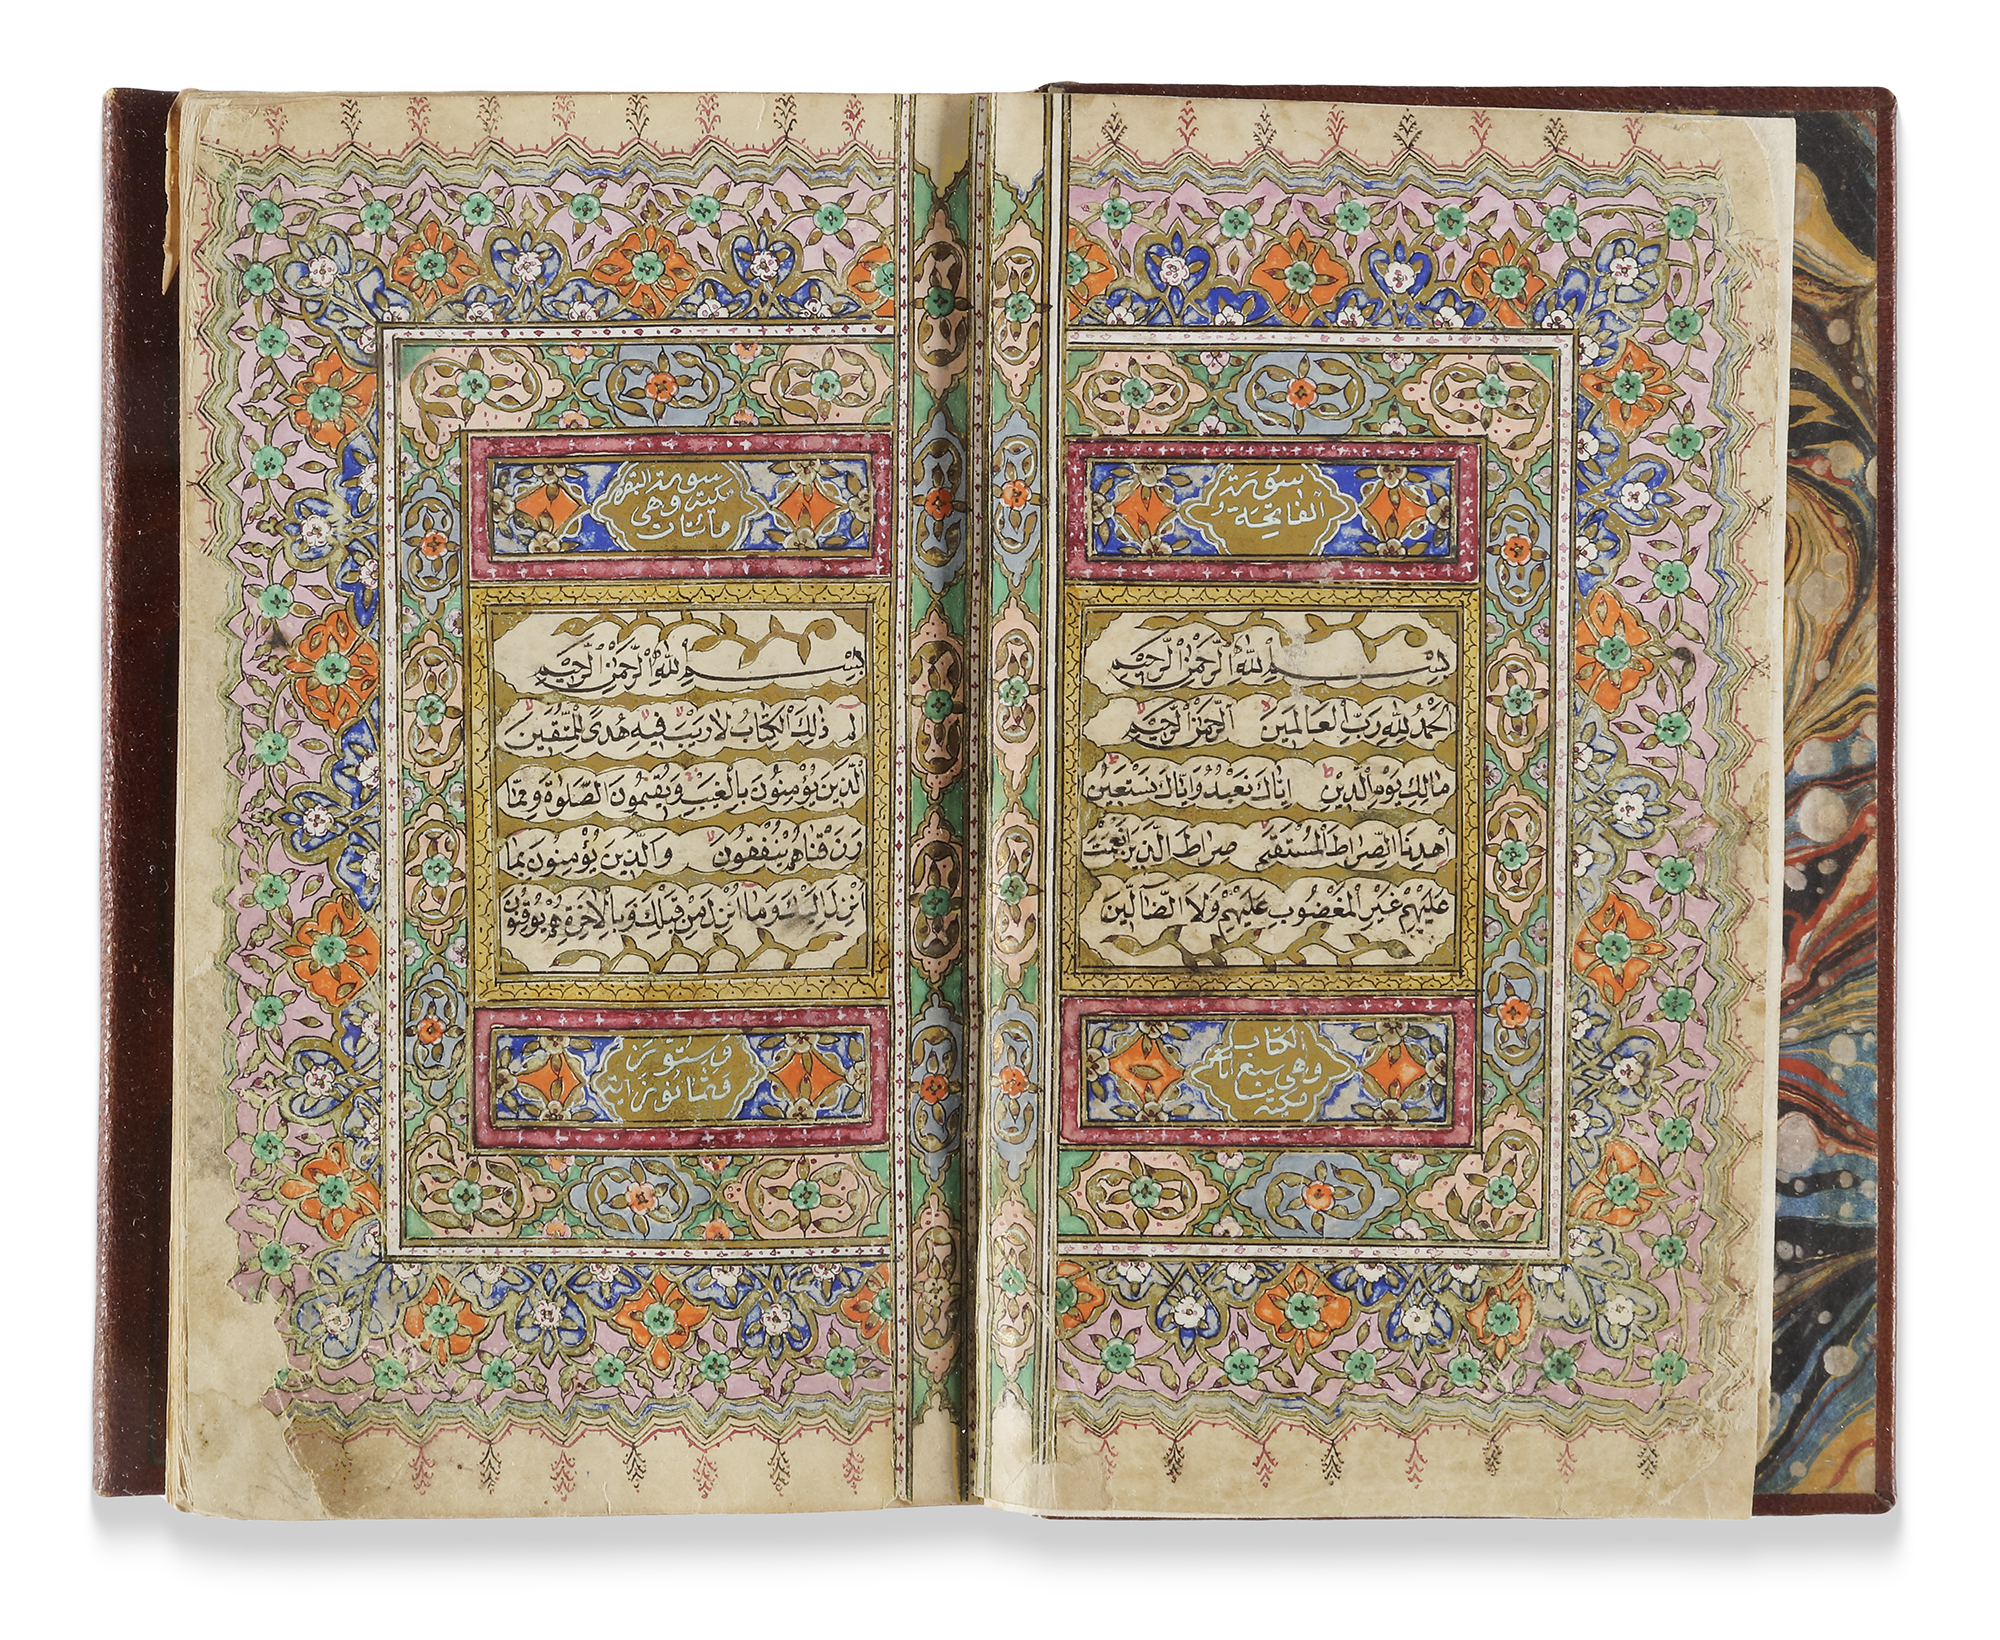 سورة
الفاتحة و
بِسْمِ اللّٰهِ الرَّحْمٰنِ الرَّحِيمِ
اَلْحَمْدُ لِلّٰهِ رَبِّ الْعَالَمِينَ الرَّحْمٰنِ الرَّحِيمِ
مَالِكِ يَوْمِ الدِّينِ اِيَّاكَ نَعْبُدُ وَاِيَّاكَ نَسْتَعِينُ
اِهْدِنَا الصِّرَاطَ الْمُسْتَقِيمَ صِرَاطَ الَّذِينَ اَنْعَمْتَ
عَلَيْهِمْ غَيْرِ الْمَغْضُوبِ عَلَيْهِمْ وَلَا الضَّالِّينَ
الكتاب
وهي سبع ايات
مكية
سورة البقرة
مكية وهي
مائتان
بِسْمِ اللّٰهِ الرَّحْمٰنِ الرَّحِيمِ
الم ذٰلِكَ الْكِتَابُ لَا رَيْبَ فِيهِ هُدًى لِلْمُتَّقِينَ
الَّذِينَ يُؤْمِنُونَ بِالْغَيْبِ وَيُقِيمُونَ الصَّلٰوةَ وَمِمَّا
رَزَقْنَاهُمْ يُنْفِقُونَ وَالَّذِينَ يُؤْمِنُونَ بِمَا
اُنْزِلَ اِلَيْكَ وَمَا اُنْزِلَ مِنْ قَبْلِكَ وَبِالْاٰخِرَةِ هُمْ يُوقِنُونَ
وستون
وثمانون اية